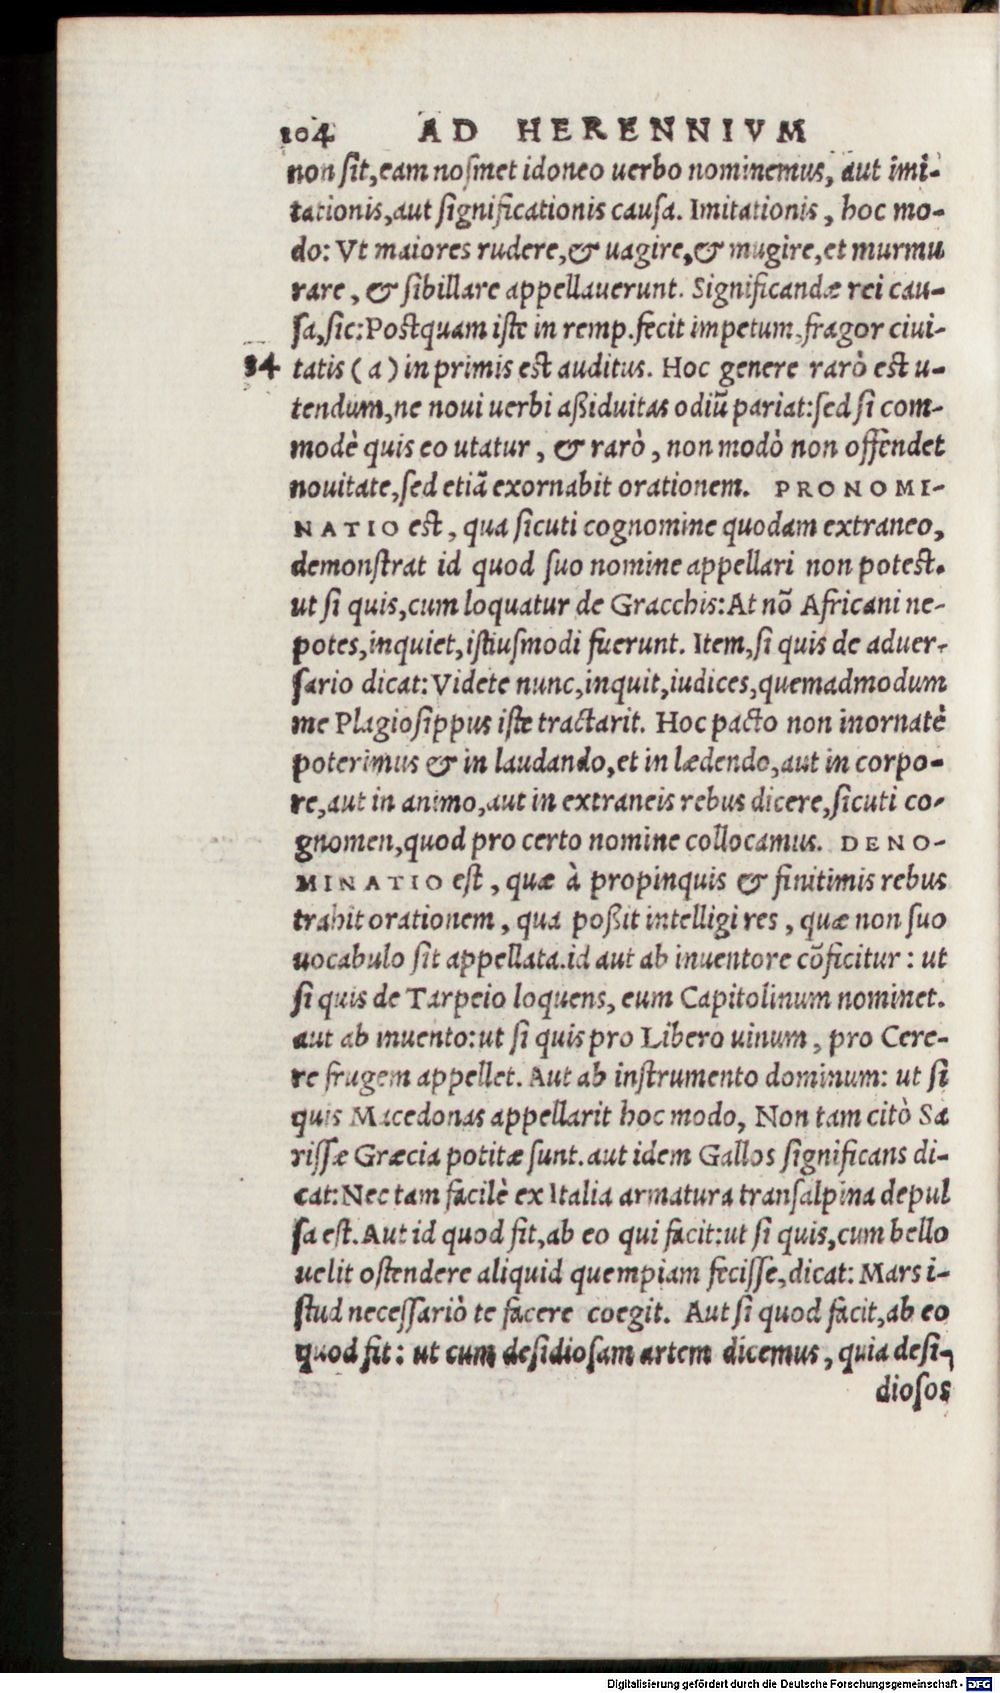 104 AD HERENNIVM
non sit, eam nosmet idoneo uerbo nominemus, aut imi-
tationis, aut significationis causa. Imitationis, hoc mo-
do: Vt maiores rudere, & uagire, & mugire, et murmu
rare, & sibillare appellauerunt. Significandæ rei cau-
sa, sic: Postquam iste in remp. fecit impetum, fragor ciui-
34 tatis (a) in primis est auditus. Hoc genere rarò est u-
tendum, ne noui uerbi aßiduitas odiũ pariat: sed si com-
modè quis eo utatur, & rarò, non modò non offendet
nouitate, sed etiã exornabit orationem. PRONOMI-
NATIO est, qua sicuti cognomine quodam extraneo,
demonstrat id quod suo nomine appellari non potest.
ut si quis, cum loquatur de Gracchis: At nõ Africani ne-
potes, inquiet, istiusmodi fuerunt. Item, si quis de aduer-
sario dicat: Videte nunc, inquit, iudices, quemadmodum
me Plagiosippus iste tractarit. Hoc pacto non inornatè
poterimus & in laudando, et in lædendo, aut in corpo-
re, aut in animo, aut in extraneis rebus dicere, sicuti co-
gnomen, quod pro certo nomine collocamus. DENO-
MINATIO est, quæ à propinquis & finitimis rebus
trahit orationem, qua poßit intelligi res, quæ non suo
uocabulo sit appellata. id aut ab inuentore cõficitur: ut
si quis de Tarpeio loquens, eum Capitolinum nominet.
aut ab inuento: ut si quis pro Libero uinum, pro Cere-
re frugem appellet. Aut ab instrumento dominum: ut si
quis Macedonas appellarit hoc modo, Non tam citò Sa
rissæ Græcia potitæ sunt. aut idem Gallos significans di-
cat: Nec tam facilè ex Italia armatura transalpina depul
sa est. Aut id quod fit, ab eo qui facit: ut si quis, cum bello
uelit ostendere aliquid quempiam fecisse, dicat: Mars i-
stud necessariò te facere coegit. Aut si quod facit, ab eo
quod fit: ut cum desidiosam artem dicemus, quia desi-
diosos
Digitalisierung gefördert durch die Deutsche Forschungsgemeinschaft - DFG